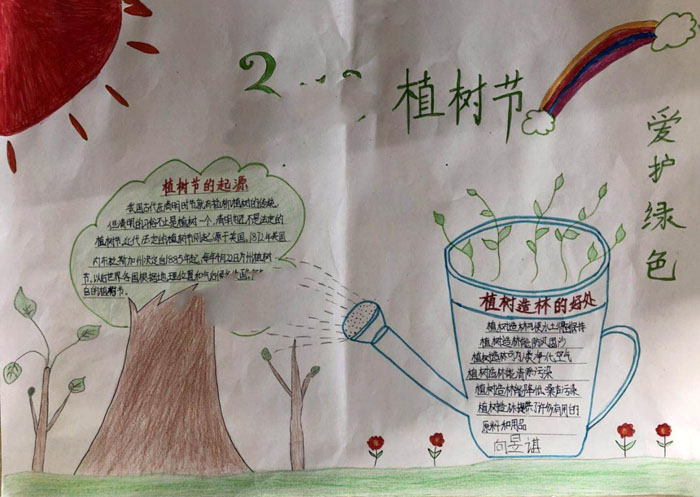 植树节
爱护绿色
植树节的起源
我国古代在清明时节就有插柳植树的传统
但清明的习俗不止是植树一个,清明也不是法定的
植树节。近代法定的植树节则起源于美国。1872年美国
内布拉斯加州决定自1885年起,每年4月22日为州植树
节,以后世界各国根据地理位置和气候
自的植树节。
植树造林的好处
植树造林可使水土得保持
植树造林能防风固沙
植树造林
植树造林能消除污染
植树造林能降低噪音污染
植树造林提供了许多有用的
原料和用品
向昱谌